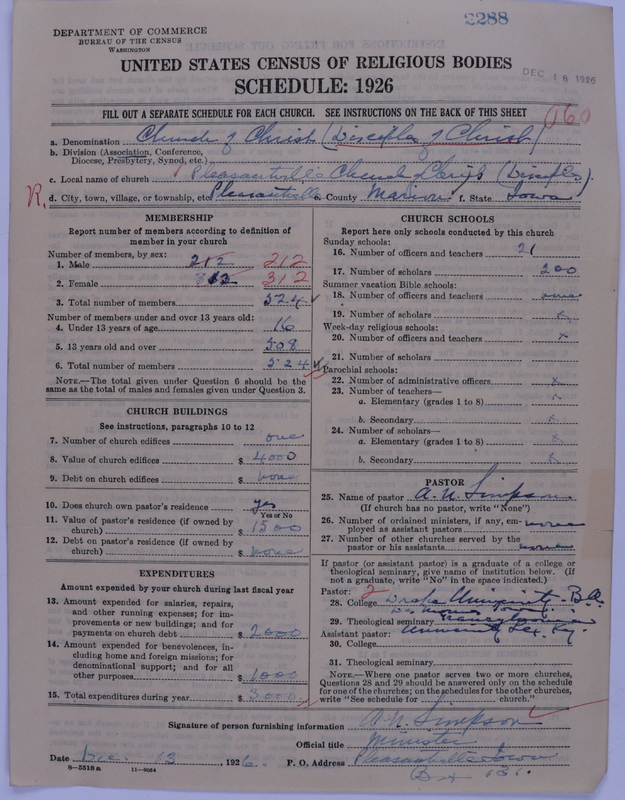 2288
DEPARTMENT OF COMMERCE
BUREAU OF THE CENSUS
WASHINGTON
UNITED STATES CENSUS OF RELIGIOUS BODIES
DEC 18 1926
SCHEDULE: 1926
FILL OUT A SEPARATE SCHEDULE FOR EACH CHURCH. SEE INSTRUCTIONS ON THE BACK OF THIS SHEET
160
a. Denomination Church of Christ (Disciples of Christ)
b. Division (Association, Conference,
Diocese, Presbytery, Synod, etc.)
c. Local name of church Pleasantville Church of Christ (Disciples).
R. d. City, town, village, or township, etc. Pleasantville e. County Marion f. State Iowa
MEMBERSHIP
Report number of members according to definition of
member in your church
Number of members, by sex:
1. Male 212 212
2. Female 312
3. Total number of members 524
Number of members under and over 13 years old:
4. Under 13 years of age 16
5. 13 years old and over 508
6. Total number of members 524
NOTE.—The total given under Question 6 should be the
same as the total of males and females given under Question 3.
CHURCH BUILDINGS
See instructions, paragraphs 10 to 12
7. Number of church edifices one
8. Value of church edifices $ 4000
9. Debt on church edifices $ none
10. Does church own pastor's residence yes
Yes or No
11. Value of pastor's residence (if owned by
church) $ 1500
12. Debt on pastor's residence (if owned by
church) $ none
EXPENDITURES
Amount expended by your church during last fiscal year
13. Amount expended for salaries, repairs,
and other running expenses; for im-
provements or new buildings; and for
payments on church debt $ 2000
14. Amount expended for benevolences, in-
cluding home and foreign missions; for
denominational support; and for all
other purposes $ 1000
15. Total expenditures during year $ 3000
CHURCH SCHOOLS
Report here only schools conducted by this church
Sunday schools:
16. Number of officers and teachers 21
17. Number of scholars 200
Summer vacation Bible schools:
18. Number of officers and teachers none
19. Number of scholars x
Week-day religious schools:
20. Number of officers and teachers x
21. Number of scholars
Parochial schools:
22. Number of administrative officers x
23. Number of teachers—
a. Elementary (grades 1 to 8) x
b. Secondary x
24. Number of scholars—
a. Elementary (grades 1 to 8) x
b. Secondary x
PASTOR
25. Name of pastor A. N. Simpson
(If church has no pastor, write "None")
26. Number of ordained ministers, if any, em-
ployed as assistant pastors none
27. Number of other churches served by the
pastor or his assistants none
If pastor (or assistant pastor) is a graduate of a college or
theological seminary, give name of institution below. (If
not a graduate, write "No" in the space indicated.)
Pastor: 2
28. College Drake University - B.A.
Des Moines Iowa
29. Theological seminary Transylvania
Assistant pastor: University Lex. Ky.
30. College
31. Theological seminary
NOTE.—Where one pastor serves two or more churches,
Questions 28 and 29 should be answered only on the schedule
for one of the churches; on the schedules for the other churches,
write "See schedule for church."
Signature of person furnishing information A. N. Simpson
Official title Minister
Date Dec. 13, 1926. P. O. Address Pleasantville Iowa
8—5518a 11—9054
Bx 181.